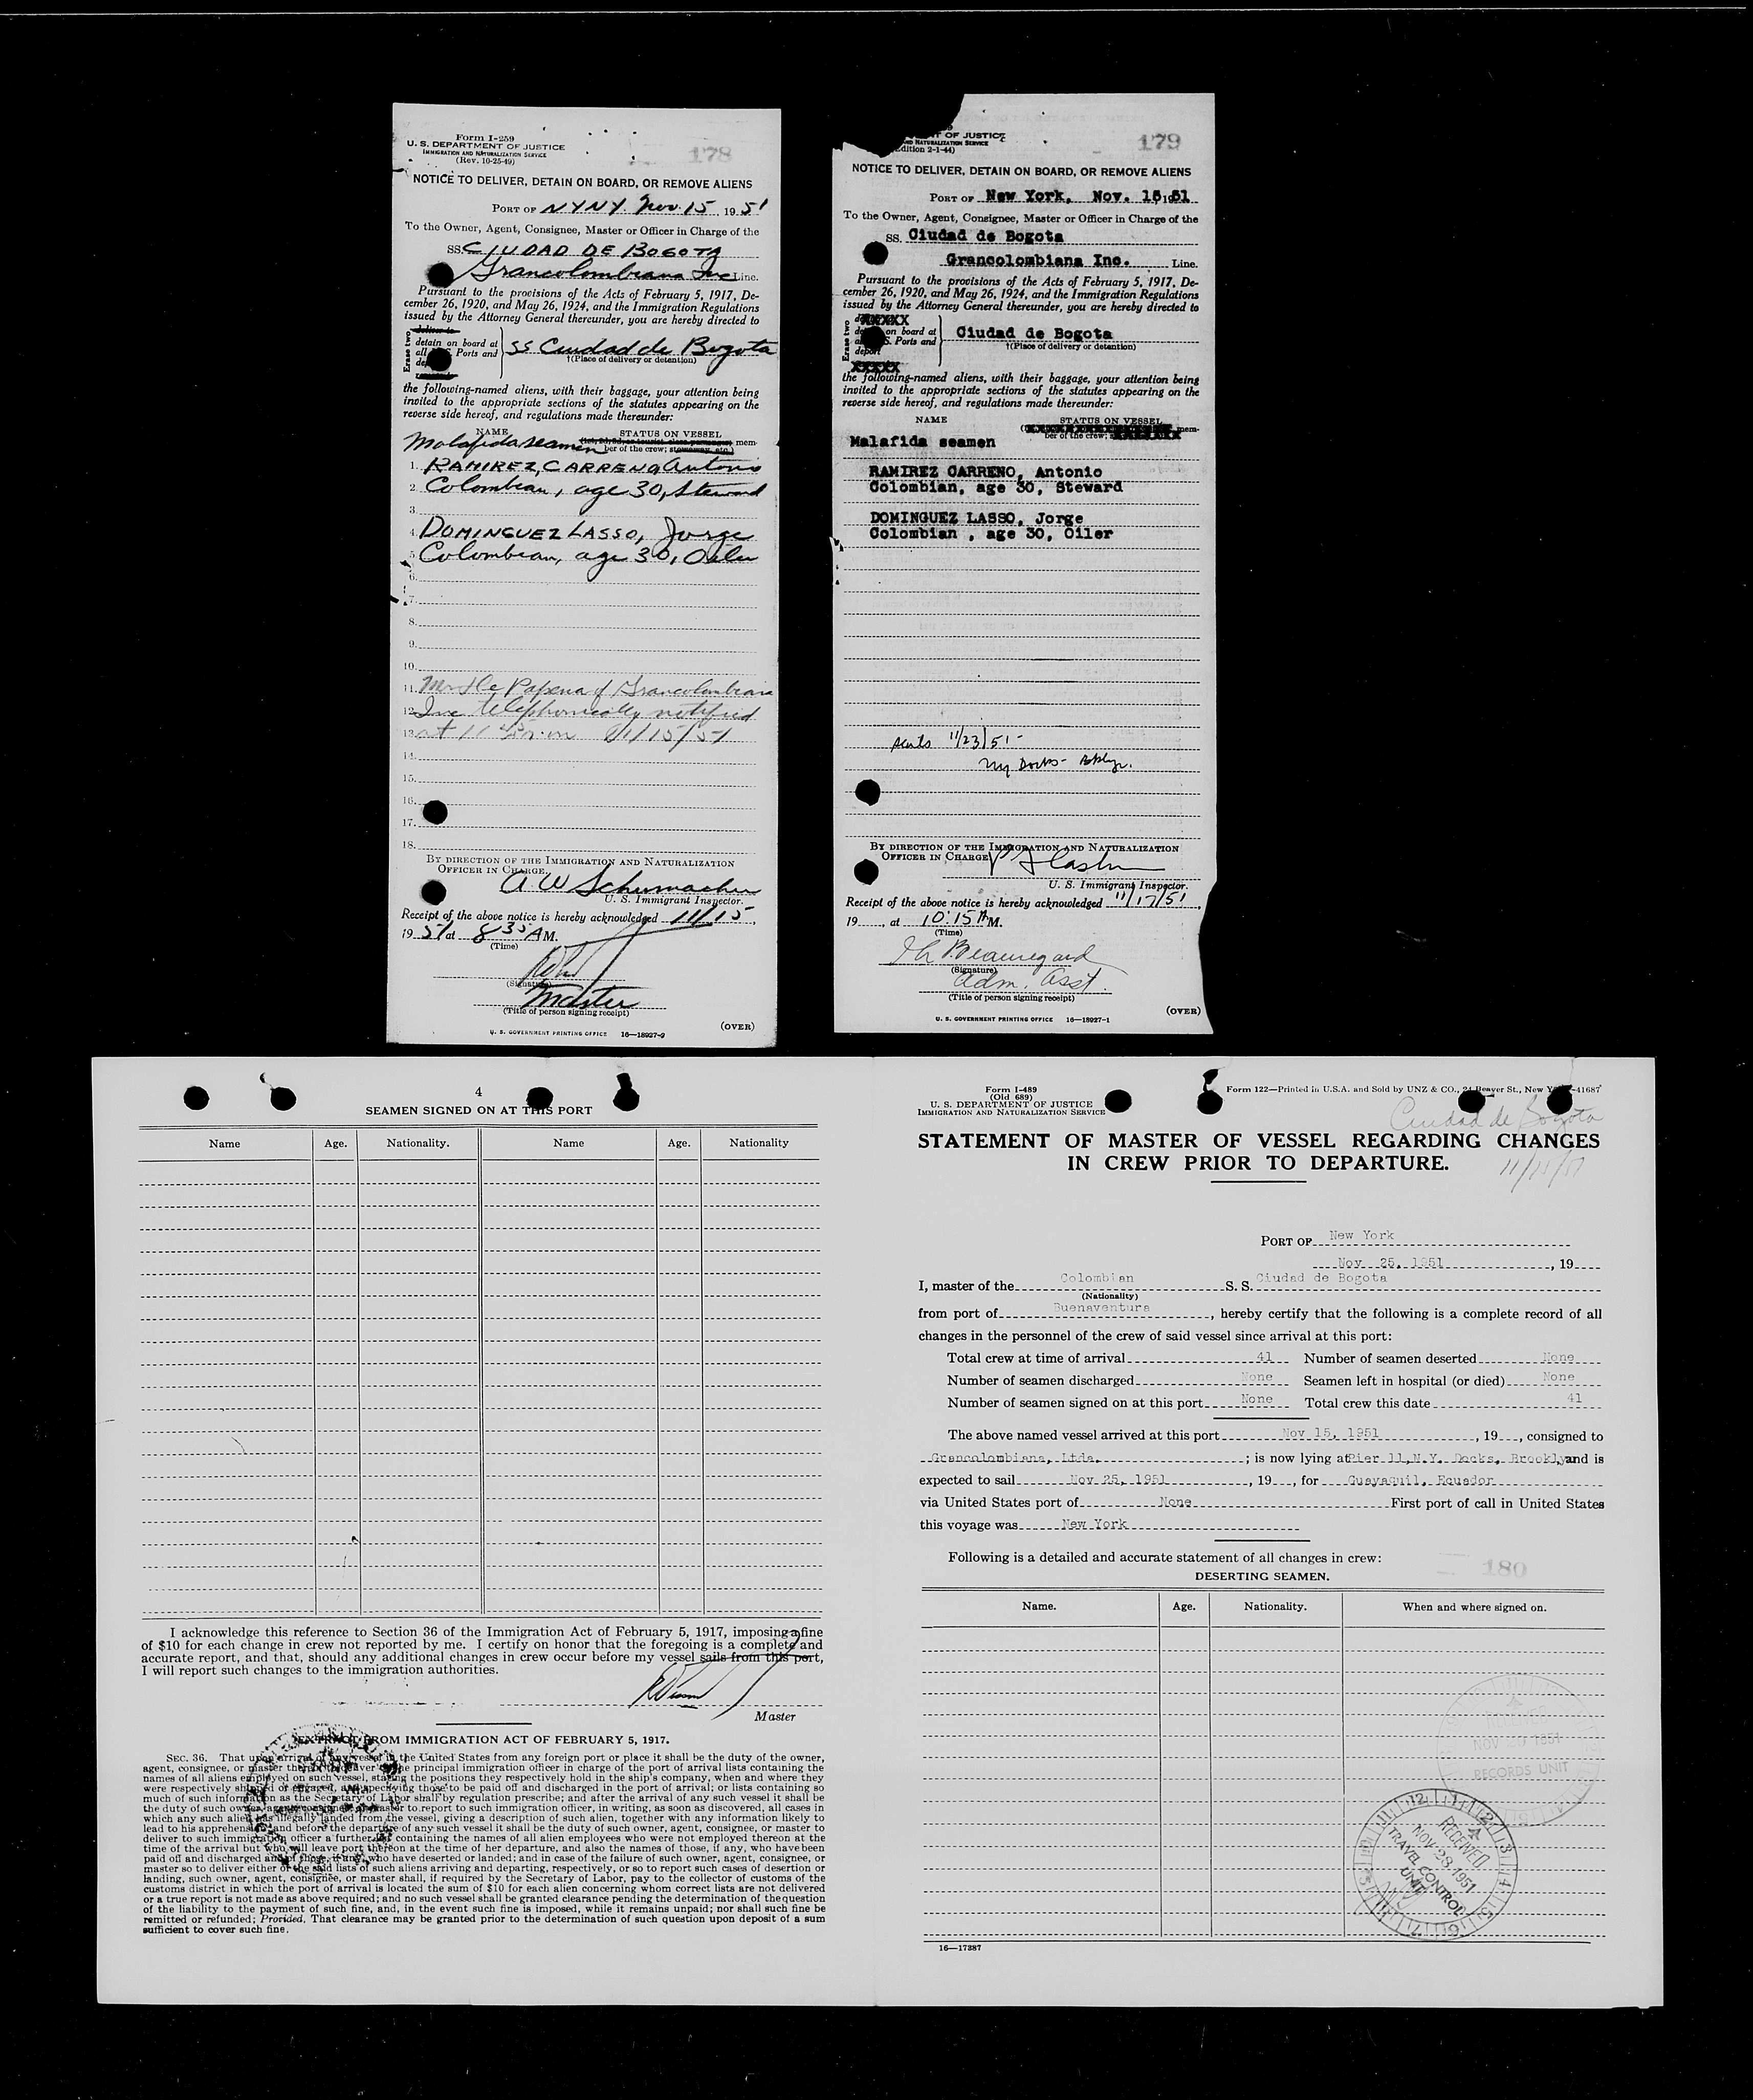 Form I-259
U. S. DEPARTMENT OF JUSTICE
IMMIGRATION AND NATURALIZATION SERVICE
(Rev. 10-25-49)
178
NOTICE TO DELIVER, DETAIN ON BOARD, OR REMOVE ALIENS
PORT OF NYNY. Nov. 15, 1951
To the Owner, Agent, Consignee, Master or Officer in Charge of the
SS. CIUDAD DE BOGOTA
Grancolombiana Inc Line.
Pursuant to the provisions of the Acts of February 5, 1917, De-
cember 26, 1920, and May 26, 1924, and the Immigration Regulations
issued by the Attorney General thereunder, you are hereby directed to
Erase two
detain on board at
all Ports and
SS Ciudad de Bogota
†(Place of delivery or detention)
the following-named aliens, with their baggage, your attention being
invited to the appropriate sections of the statutes appearing on the
reverse side hereof, and regulations made thereunder:
NAME STATUS ON VESSEL
Malafida seamen mem-
ber of the crew;
1. RAMIREZ, CARRENO, Antonio
2. Colombian, age 30, Steward
3.
4. DOMINGUEZ LASSO, Jorge
5. Colombian, age 30, Oiler
6.
7.
8.
9.
10.
11. of Grancolombiana
12. Inc telephonically notified
13. at 11 11/15/51
14.
15.
16.
17.
18.
BY DIRECTION OF THE IMMIGRATION AND NATURALIZATION
OFFICER IN CHARGE.
A W Schumacher
U. S. Immigrant Inspector.
Receipt of the above notice is hereby acknowledged 11/15,
1951 at 8 35 A M.
(Time)
(Signature)
Master
(Title of person signing receipt)
(OVER)
U. S. GOVERNMENT PRINTING OFFICE 16—18927-2
OF JUSTICE
AND NATURALIZATION SERVICE
Edition 2-1-44)
179
NOTICE TO DELIVER, DETAIN ON BOARD, OR REMOVE ALIENS
PORT OF New York, Nov. 15 1951
To the Owner, Agent, Consignee, Master or Officer in Charge of the
SS. Ciudad de Bogota
Grancolombiana Inc. Line.
Pursuant to the provisions of the Acts of February 5, 1917, De-
cember 26, 1920, and May 26, 1924, and the Immigration Regulations
issued by the Attorney General thereunder, you are hereby directed to
Erase two
on board at
S. Ports and
deport
Ciudad de Bogota
†(Place of delivery or detention)
the following-named aliens, with their baggage, your attention being
invited to the appropriate sections of the statutes appearing on the
reverse side hereof, and regulations made thereunder:
NAME STATUS ON VESSEL
mem-
ber of the crew;
Malafida seamen
RAMIREZ CARRENO, Antonio
Colombian, age 30, Steward
DOMINGUEZ LASSO, Jorge
Colombian , age 30, Oiler
sails 11/23/51-
NY Docks- Bklyn.
BY DIRECTION OF THE IMMIGRATION AND NATURALIZATION
OFFICER IN CHARGE
U. S. Immigrant Inspector.
Receipt of the above notice is hereby acknowledged 11/17/51,
19 , at 10:15 A M.
(Time)
Beauregard
(Signature)
Adm. Asst.
(Title of person signing receipt)
(OVER)
U. S. GOVERNMENT PRINTING OFFICE 16—18927-1
4
SEAMEN SIGNED ON AT THIS PORT
Name Age. Nationality. Name Age. Nationality
I acknowledge this reference to Section 36 of the Immigration Act of February 5, 1917, imposing a fine
of $10 for each change in crew not reported by me. I certify on honor that the foregoing is a complete and
accurate report, and that, should any additional changes in crew occur before my vessel sails from this port,
I will report such changes to the immigration authorities.
Master
EXTRACT FROM IMMIGRATION ACT OF FEBRUARY 5, 1917.
SEC. 36. That upon arrival of any vessel in the United States from any foreign port or place it shall be the duty of the owner,
agent, consignee, or master thereof to deliver to the principal immigration officer in charge of the port of arrival lists containing the
names of all aliens employed on such vessel, stating the positions they respectively hold in the ship's company, when and where they
were respectively shipped or engaged, and specifying those to be paid off and discharged in the port of arrival; or lists containing so
much of such information as the Secretary of Labor shall by regulation prescribe; and after the arrival of any such vessel it shall be
the duty of such owner, agent, consignee, or master to report to such immigration officer, in writing, as soon as discovered, all cases in
which any such alien has illegally landed from the vessel, giving a description of such alien, together with any information likely to
lead to his apprehension; and before the departure of any such vessel it shall be the duty of such owner, agent, consignee, or master to
deliver to such immigration officer a further list containing the names of all alien employees who were not employed thereon at the
time of the arrival but who will leave port thereon at the time of her departure, and also the names of those, if any, who have been
paid off and discharged and of those, if any, who have deserted or landed; and in case of the failure of such owner, agent, consignee, or
master so to deliver either of the said lists of such aliens arriving and departing, respectively, or so to report such cases of desertion or
landing, such owner, agent, consignee, or master shall, if required by the Secretary of Labor, pay to the collector of customs of the
customs district in which the port of arrival is located the sum of $10 for each alien concerning whom correct lists are not delivered
or a true report is not made as above required; and no such vessel shall be granted clearance pending the determination of the question
of the liability to the payment of such fine, and, in the event such fine is imposed, while it remains unpaid; nor shall such fine be
remitted or refunded; Provided, That clearance may be granted prior to the determination of such question upon deposit of a sum
sufficient to cover such fine.
Form I-489
(Old 689)
U. S. DEPARTMENT OF JUSTICE
IMMIGRATION AND NATURALIZATION SERVICE
Form 122—Printed in U.S.A. and Sold by UNZ & CO., 24 Beaver St., New Y -41687
Ciudad de Bogota
STATEMENT OF MASTER OF VESSEL REGARDING CHANGES
IN CREW PRIOR TO DEPARTURE.
11/15/51
PORT OF New York
Nov 25, 1951 , 19
I, master of the Colombian S. S. Ciudad de Bogota
(Nationality)
from port of Buenaventura , hereby certify that the following is a complete record of all
changes in the personnel of the crew of said vessel since arrival at this port:
Total crew at time of arrival 41 Number of seamen deserted None
Number of seamen discharged None Seamen left in hospital (or died) None
Number of seamen signed on at this port None Total crew this date 41
The above named vessel arrived at this port Nov 15, 1951 , 19 , consigned to
Grancolombiana, Ltda. ; is now lying at Pier 11, N.Y. Docks, Brooklyn and is
expected to sail Nov 25, 1951 , 19 , for Guayaquil, Ecuador
via United States port of None First port of call in United States
this voyage was New York
Following is a detailed and accurate statement of all changes in crew:
180
DESERTING SEAMEN.
Name. Age. Nationality. When and where signed on.
RECEIVED
NOV 20 1951
RECORDS UNIT
RECEIVED
NOV 28 1951
TRAVEL CONTROL
UNIT
16—17387